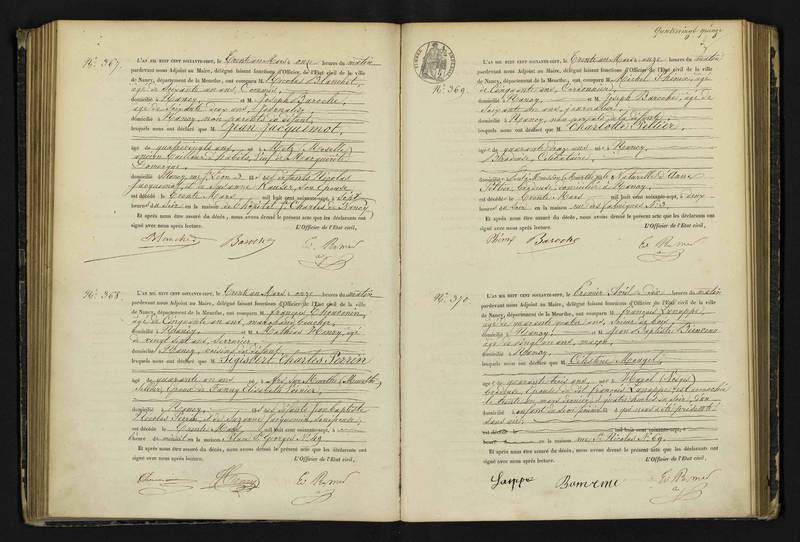 N.º 367.
L'AN MIL HUIT CENT SOIXANTE-SEPT, le Trente un Mars à onze heures du matin
pardevant nous Adjoint au Maire, délégué faisant fonctions d'Officier de l'Etat civil de la ville
de Nancy, département de la Meurthe, ont comparu M. Nicolas Blanchet,
âgé de Soixante un ans,
domicilié à Nancy, et M. Joseph Baroche,
âgé de Soixante deux ans, Journalier
domicilié à Nancy non parents du défunt,
lesquels nous ont déclaré que M. Jean Jacquemot,
âgé de quatrevingts ans, né à Metz (Moselle)
ancien veuf de Marguerite
domicilié Nancy, rue St Léon 3
Jacquemot, et de Suzanne son épouse
est décédé le Trente Mars mil huit cent soixante-sept, à Sept
heures du soir en la maison de l'hôpital St Charles de Nancy
Et après nous être assuré du décès, nous avons dressé le présent acte que les déclarants ont
signé avec nous après lecture. L'Officier de l'Etat civil,
Blanchet Baroche
N.º 368.
L'AN MIL HUIT CENT SOIXANTE-SEPT, le Trente un Mars à onze heures du matin
pardevant nous Adjoint au Maire, délégué faisant fonctions d'Officier de l'Etat civil de la ville
de Nancy, département de la Meurthe, ont comparu M. François
âgé de Cinquante un ans,
domicilié à Nancy, et M. Mathias Henry, âgé
de vingt sept ans, Serrurier
domicilié à Nancy, voisins du défunt,
lesquels nous ont déclaré que M. Sigisbert Charles Perrin
âgé de quarante un ans né à sur Meurthe (Meurthe)
Sellier, époux de Fanny Elisabeth
domicilié à Nancy, Jean Baptiste
Nicolas Perrin, et de Suzanne Jacquemin,
est décédé le Trente Mars mil huit cent soixante-sept, à
heure en la maison Place St Georges N.º 49
Et après nous être assuré du décès, nous avons dressé le présent acte que les déclarants ont
signé avec nous après lecture. L'Officier de l'Etat civil,
Henry
Quatrevingt quinze
N.º 369.
L'AN MIL HUIT CENT SOIXANTE-SEPT, le Trente un Mars à onze heures du matin
pardevant nous Adjoint au Maire, délégué faisant fonctions d'Officier de l'Etat civil de la ville
de Nancy, département de la Meurthe, ont comparu M. Michel âgé
de Cinquante ans, Cordonnier,
domicilié à Nancy, et M. Joseph Baroche, âgé de
Soixante deux ans, journalier
domicilié à Nancy, non parents de la défunte,
lesquels nous ont déclaré que M. Charlotte Pellier,
âgée de quarante deux ans née à Nancy
Brodeuse, Célibataire,
domiciliée naturelle d'Anne
Pellier domiciliée à Nancy,
est décédée le Trente Mars mil huit cent soixante-sept, à deux
heures du soir en la maison rue des fabriques N.º 3.
Et après nous être assuré du décès, nous avons dressé le présent acte que les déclarants ont
signé avec nous après lecture. L'Officier de l'Etat civil,
Baroche
N.º 370.
L'AN MIL HUIT CENT SOIXANTE-SEPT, le Premier Avril à dix heures du matin
pardevant nous Adjoint au Maire, délégué faisant fonctions d'Officier de l'Etat civil de la ville
de Nancy, département de la Meurthe, ont comparu M. François
âgé de quarante quatre ans, Scieur de bois,
domicilié à Nancy, et M. Jean Baptiste
âgé de vingt un ans, maçon,
domicilié à Nancy,
lesquels nous ont déclaré que M. Célestine Mougel,
âgée de quarante trois ans, née à (Vosges)
épouse de François est accouchée
le trente un mars dernier, à quatre heures du soir, d'un
enfant du sexe féminin, qui nous a été présenté
sans vie,
est décédé le mil huit cent soixante-sept, à
heure en la maison rue St Nicolas N.º 69.
Et après nous être assuré du décès, nous avons dressé le présent acte que les déclarants ont
signé avec nous après lecture. L'Officier de l'Etat civil,